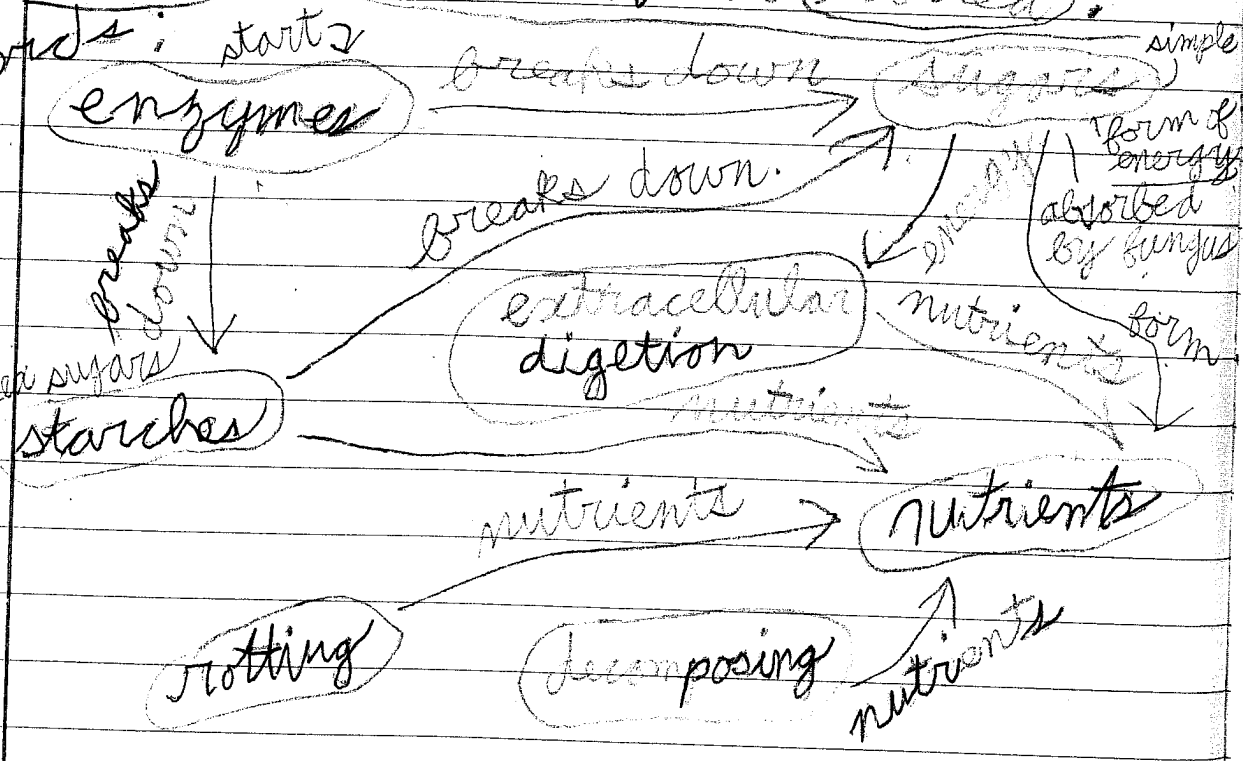 starts
simple
enzymes
breaks down
sugars
form of
energy
absorbed
by fungus
breaks
down
breaks down.
energy
extracellular
digetion
nutrients
form
sugars
starches
nutrients
nutrients
nutrients
rotting
decomposing
nutrients